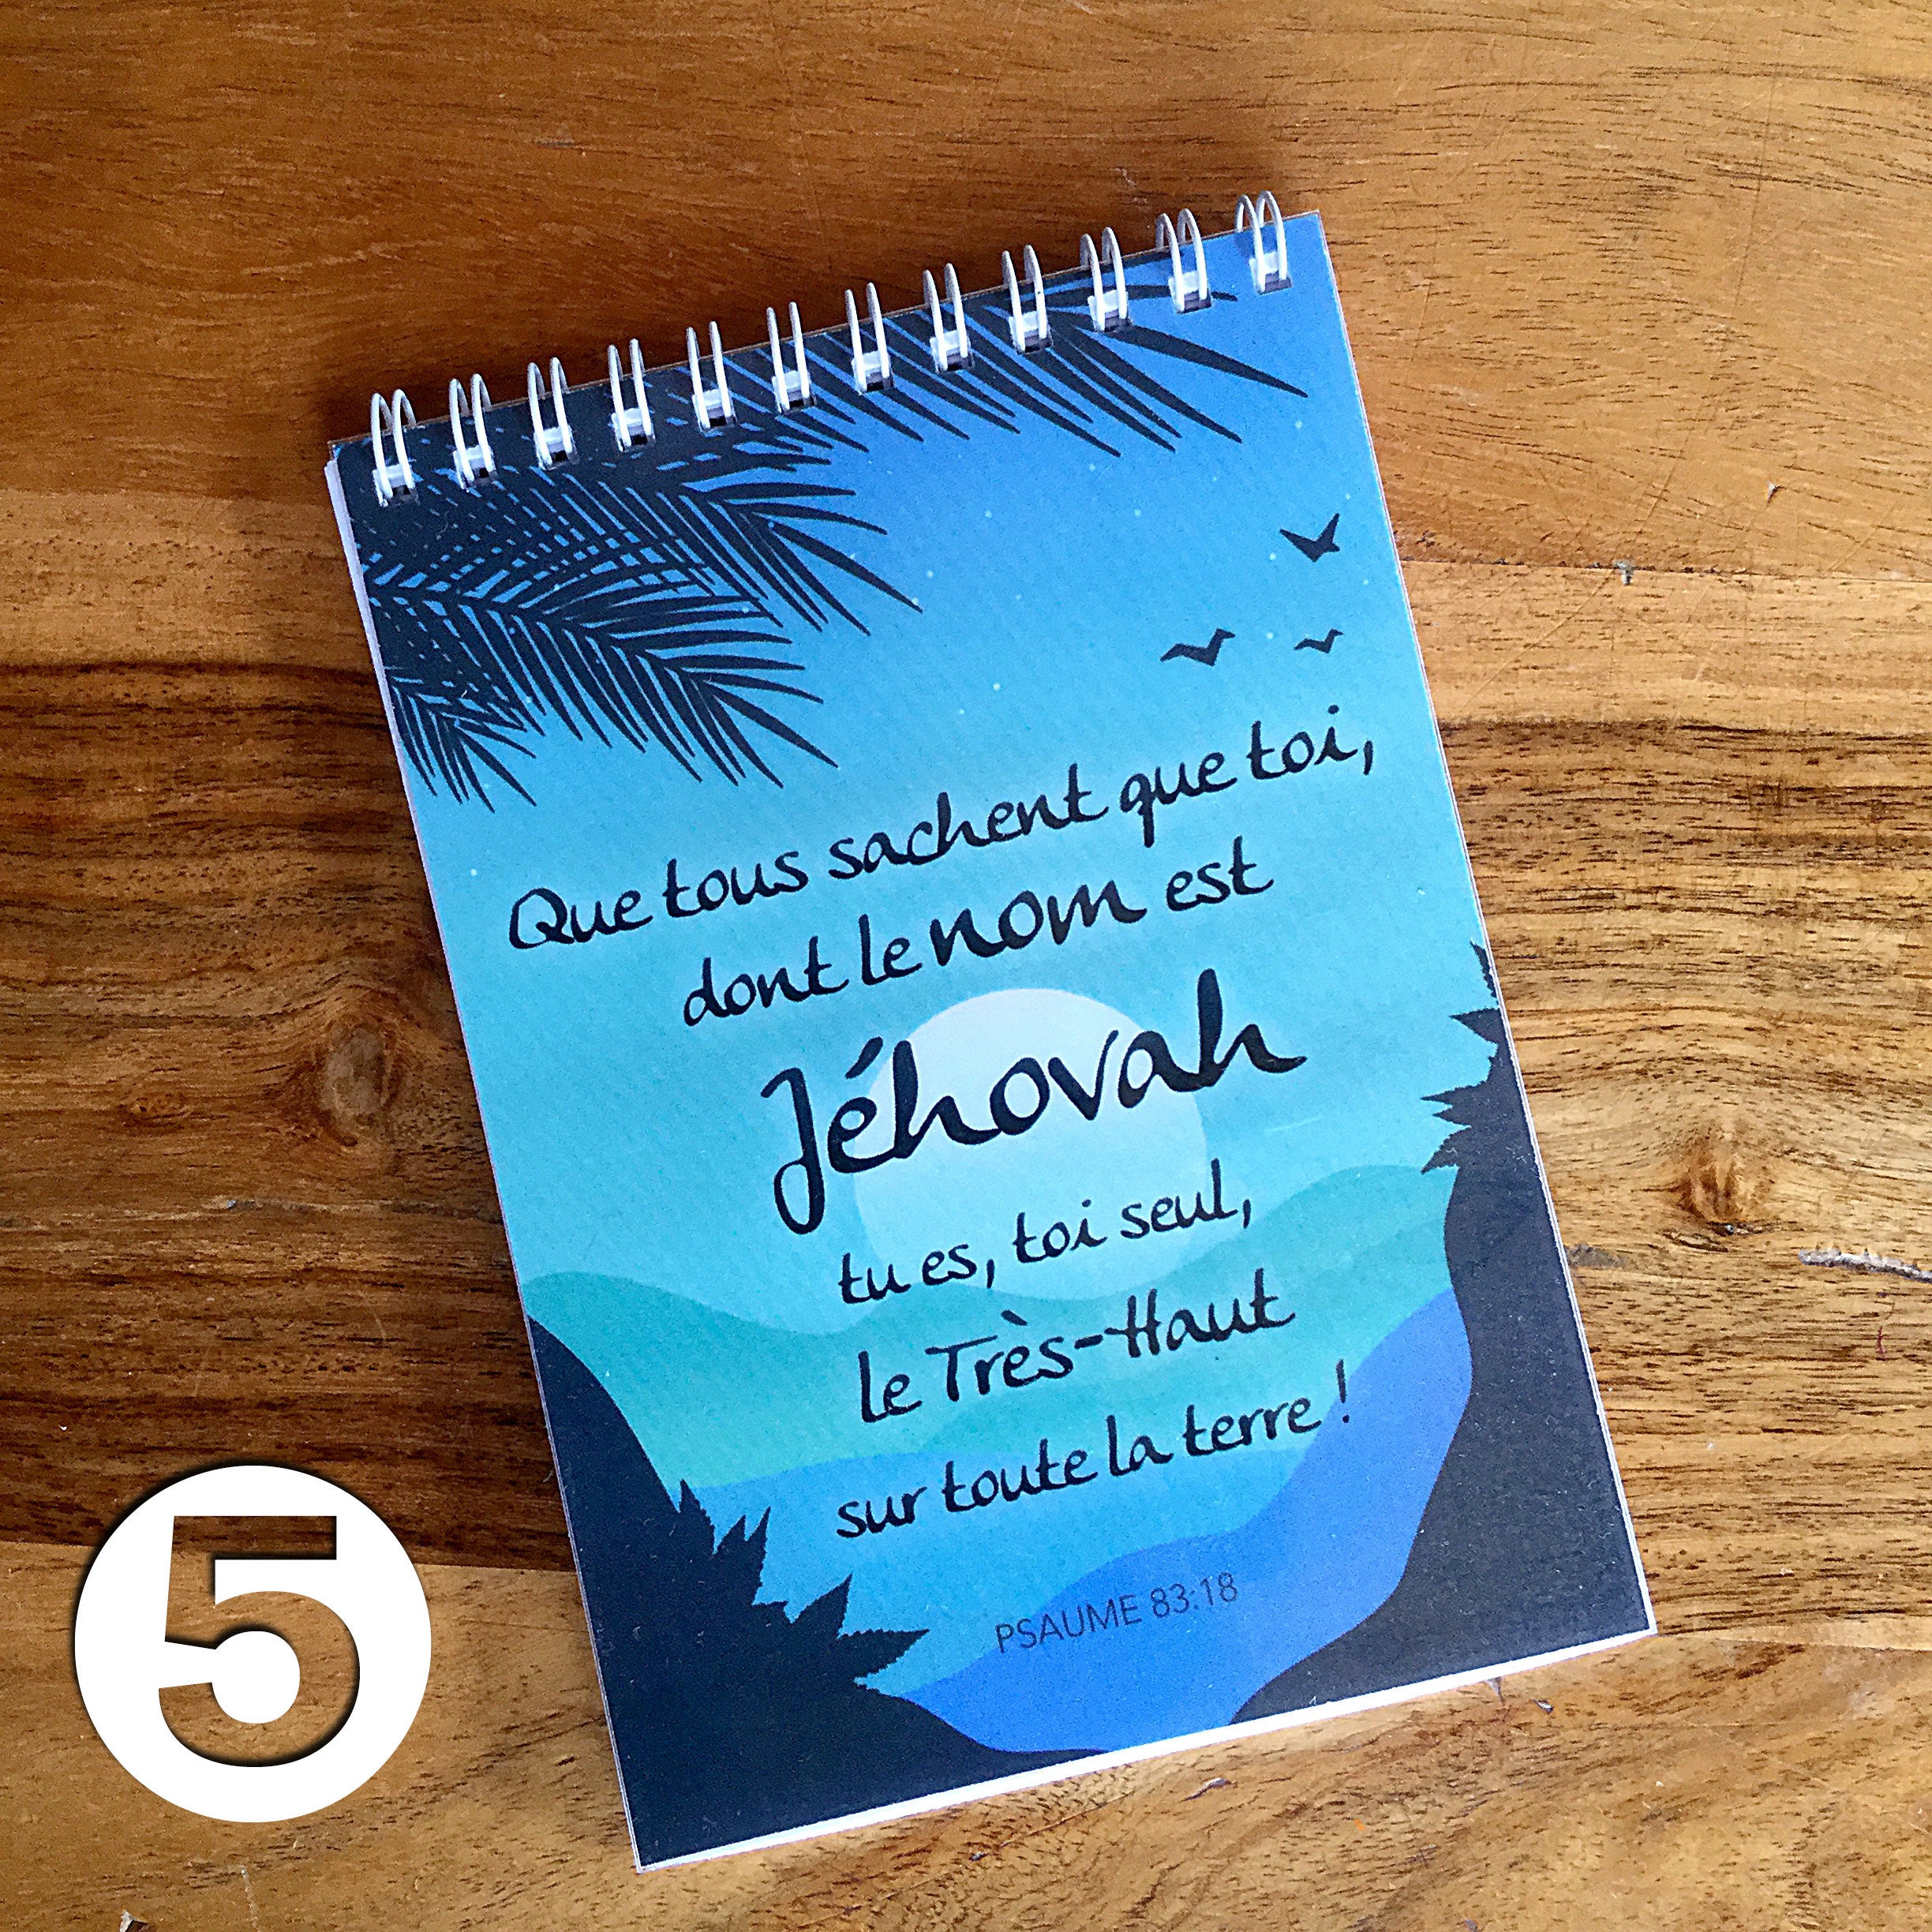 Que tous sachent que toi,
dont le nom est
Jéhovah
tu es, toi seul,
le Très-Haut
sur toute la terre !
PSAUME 83:18
5